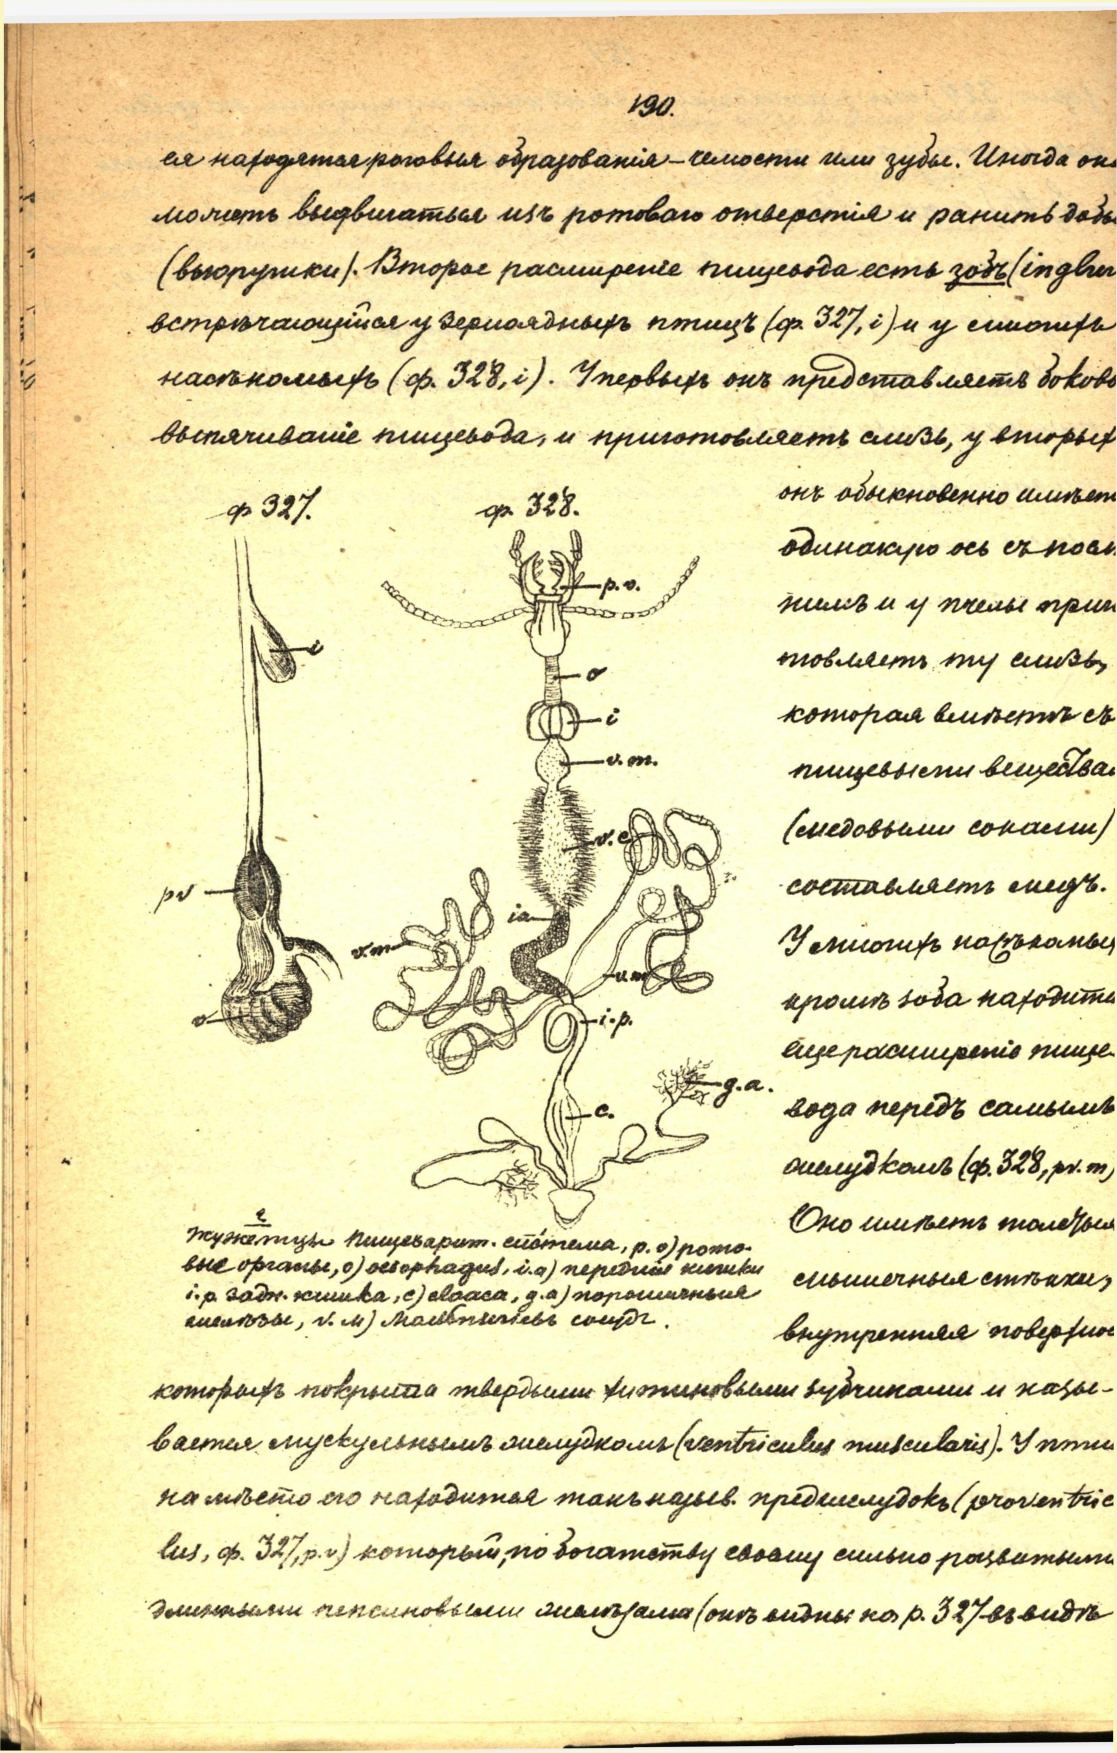 190.
ся находятся роговыя образованія – челюсти или зубы. Иногда он
можетъ выдвигаться изъ ротоваго отверстія и ранить добы
(выюрушки). Второе расширеніе пищевода есть зобъ (inglu
встрѣчающійся у зерноядныхъ птицъ (ф. 327, i) и у многихъ
насѣкомыхъ (ф. 328, i). У первыхъ онъ представляетъ боково
выпячиваніе пищевода, и приготовляетъ слизь, у вторых
онъ обыкновенно имѣет
одинакую ось съ посл
нимъ и у пчелы приг
товляетъ ту слизь,
которая вмѣстѣ съ
пищевыми вещества
(медовыми соками)
составляетъ медъ.
У многихъ насѣкомых
кромѣ зоба находитс
еще расширеніе пище-
вода передъ самымъ
желудкомъ (ф. 328, pv. m)
Оно имѣетъ толстыя
мышечныя стѣнки,
внутренняя поверхнос
ф 327.
i
pv
v
ф. 328.
p. o.
o
i
v. m.
v. c
ia
v. m
v. m
i. p.
g. a.
c.
Пищеварит. система, p. o) рото-
вые органы, o) oesophagus, i. a) передняя кишка
i. p. задн. кишка, c) cloaca, g. a)
железы, v. м) Мальпигіевъ сосудъ.
которыхъ покрыта твердыми хитиновыми зубчиками и назы-
вается мускульнымъ желудкомъ (ventriculus muscularis). У пти
на мѣсто его находится такъ назыв. преджелудокъ (proventric
lus, ф. 327, p. v) который, по богатству своему сильно развитыми
длинными пепсиновыми железами (онѣ видны на р. 327 въ видѣ